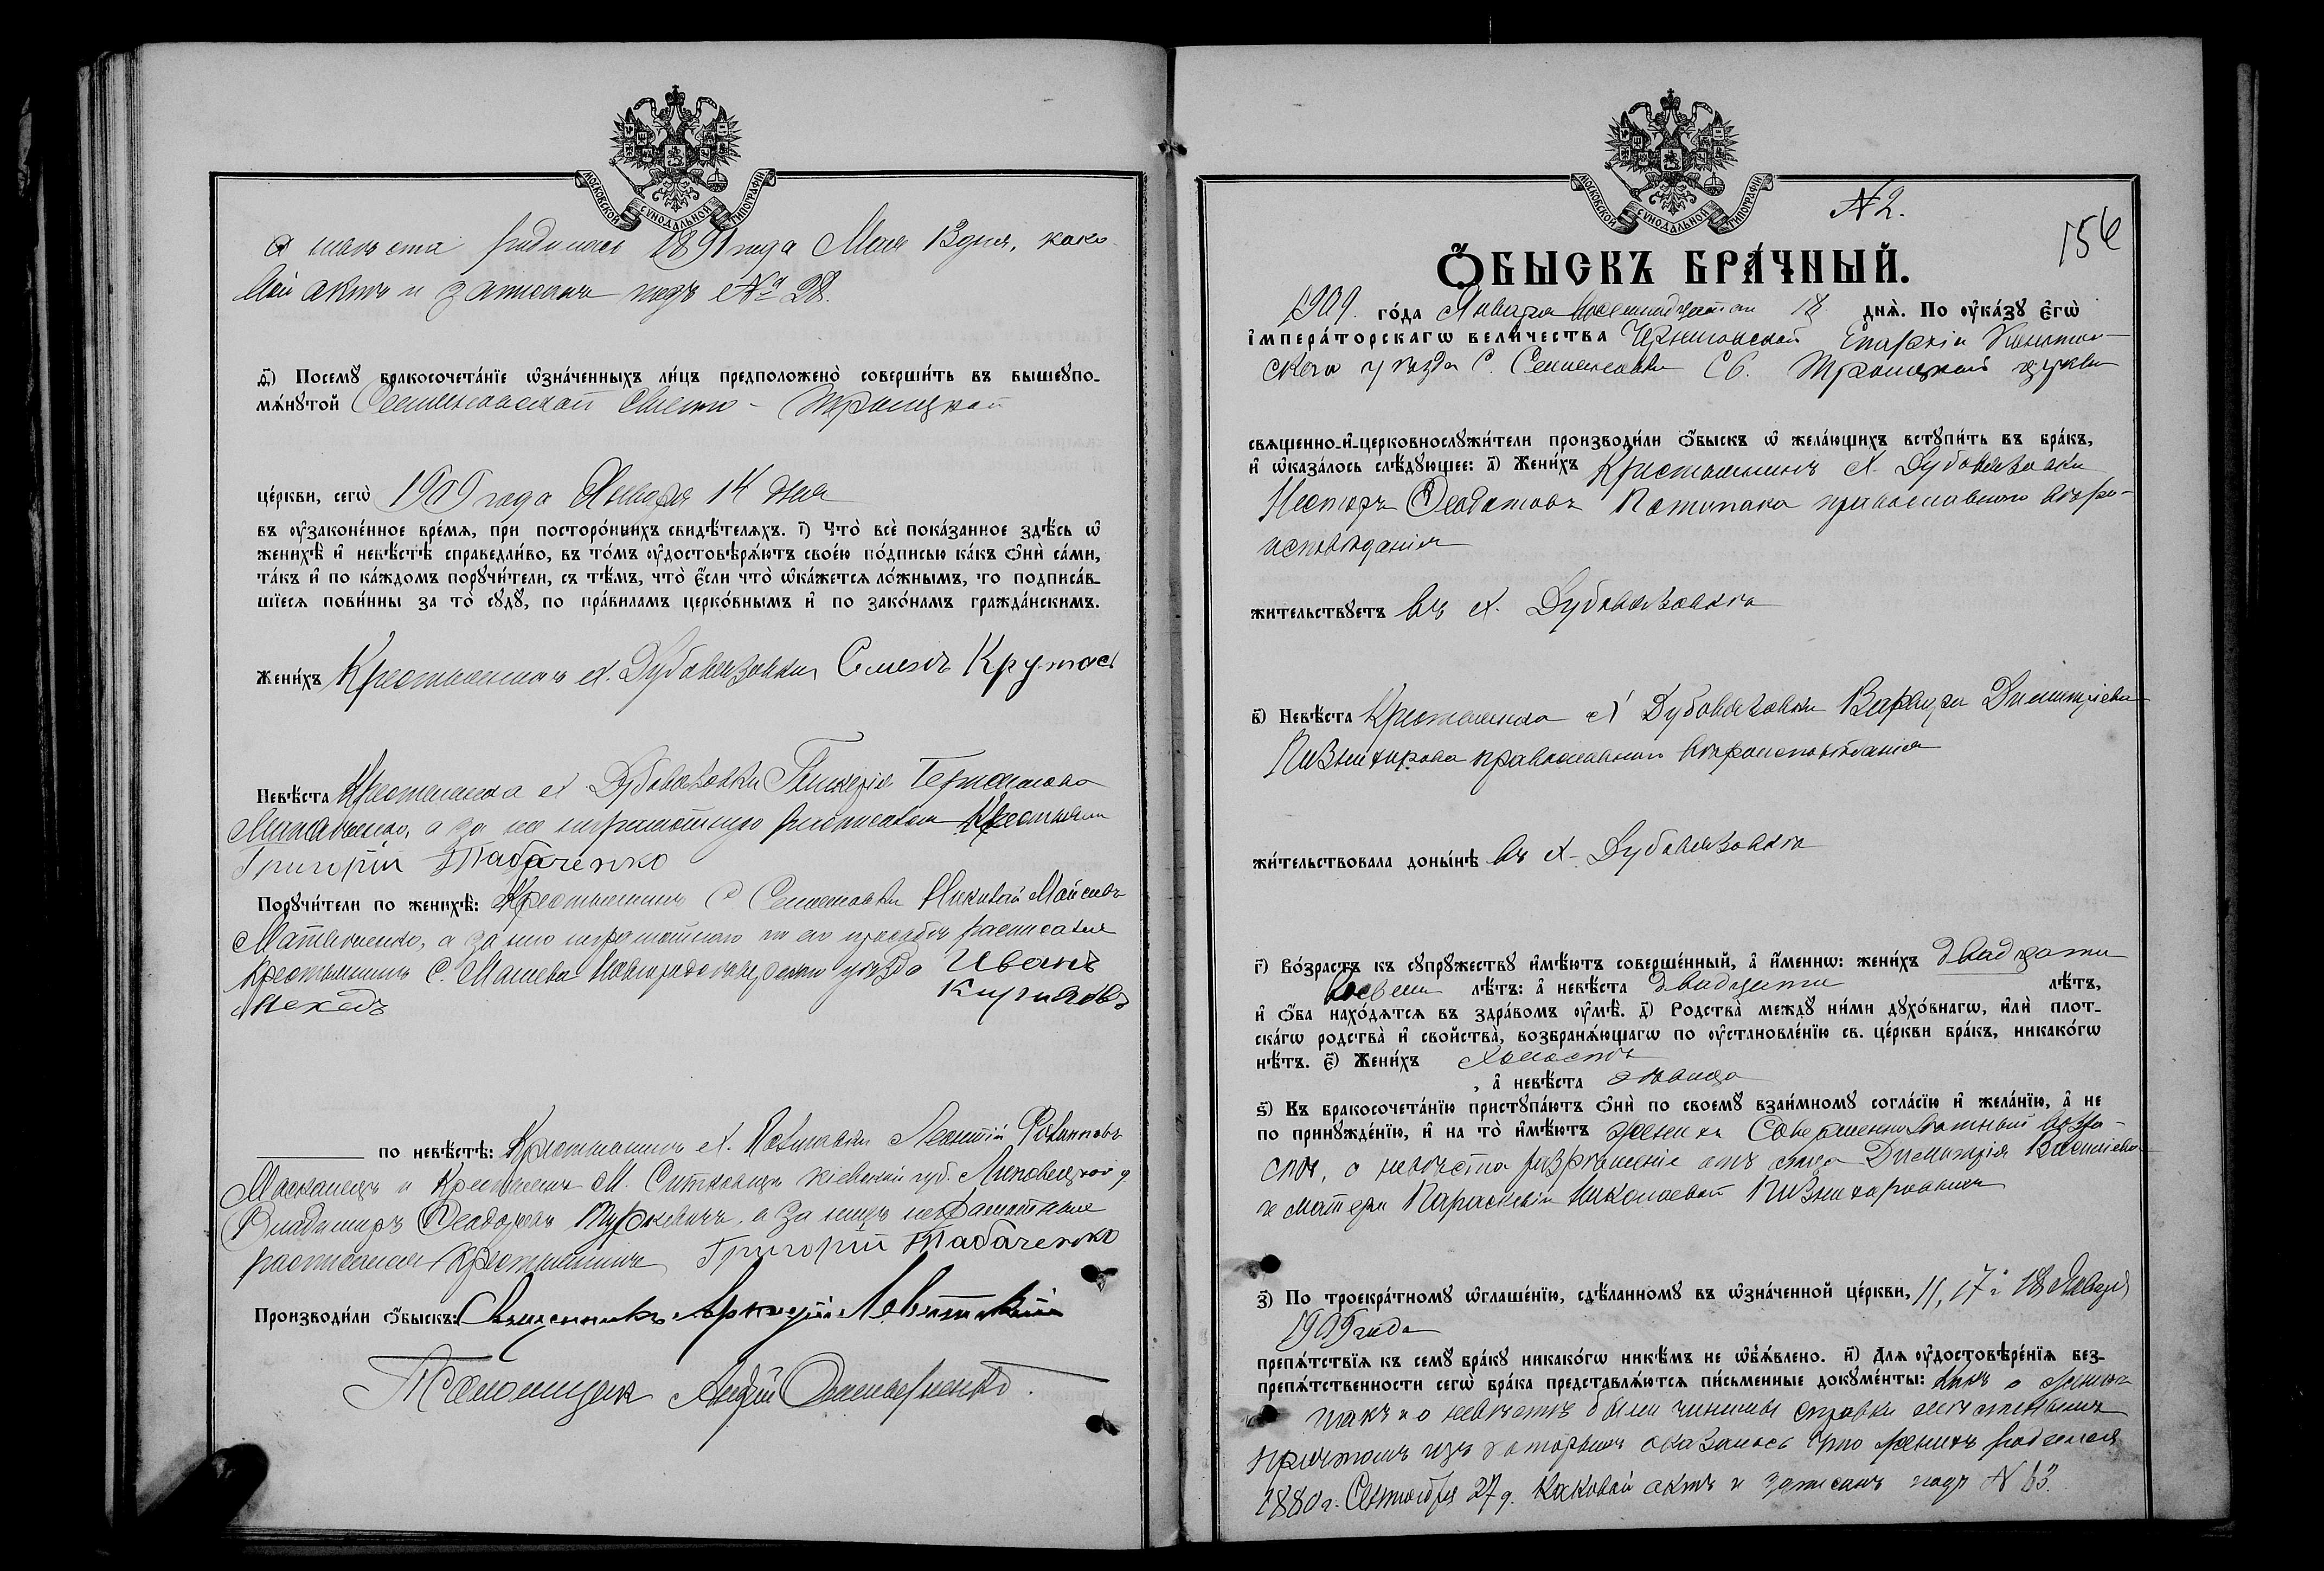 МОСКОВСКОЙ СѴНОДАЛЬНОЙ ТИПОГРАФІИ
а невѣста родилась 1891 года Мая 13 дня, како-
вой актъ и записанъ подъ № 28.
д҃і) Посемꙋ̀ бракосочета́ніе ѡ҆зна́ченныхъ ли́цъ предположено̀ соверши́ть въ вышеупо-
мѧ́нꙋтой Семеновской Свято-Троицкой
це́ркви, сегѡ̀ 1909 года Января 14 дня
въ ᲂу҆законе́нное вре́мѧ, при посторо́ннихъ свидѣ́телѧхъ. і҃) Что̀ всѐ пока́занное здѣ́сь ѡ҆
женихѣ̀ и҆ невѣ́стѣ справедли́во, въ то́мъ ᲂу҆достовѣрѧ́ютъ свое́ю по́дписью ка́къ ѻ҆нѝ са́ми,
та́къ и҆ по ка́ждомъ порꙋчи́тели, съ тѣ́мъ, что̀ є҆́сли что̀ ѡ҆ка́жетсѧ ло́жнымъ, то подписа́в-
шіесѧ пови́нны за то̀ сꙋдꙋ̀, по пра́виламъ церко́внымъ и҆ по зако́намъ гражда́нскимъ.
Жени́хъ Крестьянинъ х. Дубовязовки Семенъ Крутась
Невѣ́ста Крестьянка х. Дубовязовки Гликерія Германова
а за нее неграмотную расписался Крестьянин
Григорій Табаченко
Порꙋчи́тели по женихѣ̀: Крестьянинъ С Семеновки Мойсеевъ
а за него неграмотнаго по его просьбѣ расписался
Крестьянинъ С. Машева уѣзда Иванъ
по невѣ́стѣ: Крестьянинъ х.
и Крестьянинъ М. Ситковецъ Кіевской губ. Липовецкого у
Владимиръ Ѳеодоровъ а за нихъ неграмотные
расписался Крестьянинъ Григорій Табаченко
Производи́ли ѻ҆́быскъ: Священникъ Левитскій
Псаломщик Андрій
МОСКОВСКОЙ СѴНОДАЛЬНОЙ ТИПОГРАФІИ
№ 2.
156
Ѻ҆́БЫСКЪ БРА́ЧНЫЙ.
1909. го́да Января восемнадцатаго 18 днѧ̀. По ᲂу҆ка́зꙋ Є҆гѡ̀
і҆мпера́торскагѡ вели́чества Черниговской Епархіи
скаго уѣзда С. Семеновки Св. Троицкой церкви
свѧщенно-и҆-церковнослꙋжи́тели производи́ли ѻ҆́быскъ ѡ҆ жела́ющихъ встꙋпи́ть въ бра́къ,
и҆ ѡ҆каза́лось слѣ́дꙋющее: а҃) Жени́хъ Крестьянинъ х. Дубовязовки
Несторъ Ѳеодотовъ Потопака православного вѣро-
исповѣданія
жи́тельствꙋетъ въ х. Дубовязовкѣ
в҃) Невѣ́ста Крестьянка х Дубовязовки Варвара Димитріева
Пивнихарова православного вѣроисповѣданія
жи́тельствовала доны́нѣ въ х. Дубовязовкѣ
г҃) Во́зрастъ къ сꙋпрꙋ́жествꙋ и҆мѣ́ютъ соверше́нный, а҆ и҆́менно: жени́хъ двадцати
восьми лѣ́тъ: а҆ невѣ́ста двадцати лѣ́тъ,
и҆ ѻ҆́ба нахо́дѧтсѧ въ здра́вомъ ᲂу҆мѣ̀. д҃) Родства̀ междꙋ ни́ми дꙋхо́внагѡ, и҆лѝ плот-
ска́гѡ родства̀ и҆ свойства̀, возбранѧ́ющагѡ по ᲂу҆становле́нію св. це́ркви бра́къ, никако́гѡ
нѣ́тъ. є҃) Жени́хъ холостъ
, а҆ невѣ́ста дѣвица
ѕ҃) Къ бракосочета́нію пристꙋпа́ютъ ѻ҆нѝ по своемꙋ̀ взаи́мномꙋ согла́сію и҆ жела́нію, а҆ не
по принꙋжде́нію, и҆ на то̀ и҆мѣ́ютъ женихъ Совершеннолѣтный возра-
стъ, а невѣста разрѣшеніе отъ отца Димитрія Васильева
и матери Параскевіи Николаевой Пивнихаровыхъ
з҃) По троекра́тномꙋ ѡ҆глаше́нію, сдѣ́ланномꙋ въ ѡ҆зна́ченной це́ркви, 11, 17 и 18 Января
1909 года
препѧ́тствіѧ къ семꙋ̀ бра́кꙋ никако́гѡ никѣ́мъ не ѡ҆б̾ѧ́влено. и҃) Длѧ ᲂу҆достовѣре́ніѧ без-
препѧ́тственности сегѡ̀ бра́ка представлѧ́ютсѧ пи́сьменные докꙋме́нты: какъ о женихѣ
такъ и о невѣстѣ были чинимы справки мѣстнымъ
причтомъ изъ которыхъ оказалось что женихъ родился
1880 г. Сентября 27 д. каковой актъ и записанъ подъ № 63.